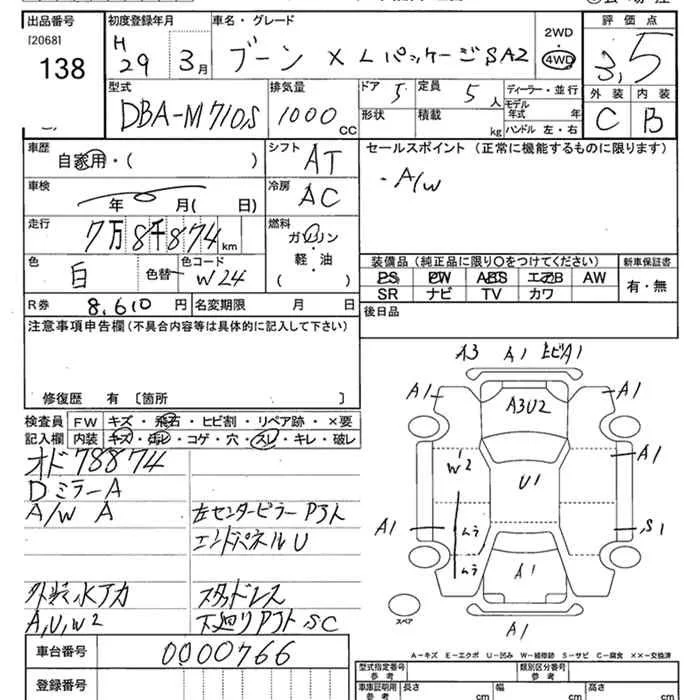 出品番号 初度登録年月 車名・グレード 2WD 評価点
[2068] H
138 29 3月 ブーン X LパッケージSA2 4WD 3,5
型式 排気量 ドア 定員 ディーラー・並行 外装 内装
DBA-M710S 1000cc 5 5人 モデル年式 年 C B
形状 積載 kg ハンドル 左・右
車歴 シフト セールスポイント (正常に機能するものに限ります)
自家用・( ) AT ・A/W
車検 冷房
年 月( 日) AC
走行 燃料
7万8千874km ガソリン・軽・油
( )
色 色コード 装備品(純正品に限り〇をつけてください) 新車保証書
白 色替 W24 PS PW ABS エアB AW 有・無
SR ナビ TV カワ
R券 8,610円 名変期限 月 日 後日品
注意事項申告欄(不具合内容等は具体的に記入して下さい)
修復歴 有 〔箇所 〕
検査員 FW キズ・飛石・ヒビ割・リペア跡・×要
記入欄 内装 キズ・汚レ・コゲ・穴・スレ・キレ・破レ
オド78874
DミラーA
A/W A 左センターピラーP3人
エンドパネルU
外装水アカ スタッドレス
A,U,W2 下廻りPフト SC
A3 A1 ヒビA1
A1 A3U2 A1
W2 U1 A1
A1 ムラ S1
ムラ A1
スペア A1
A-キズ E-エクボ U-凹み W-補修跡 S-サビ C-腐食 ××-交換済
車台番号 0000766
登録番号
型式指定番号 参考 類別区分番号 参考
車庫証明用 参考 長さ cm 幅 cm 高さ cm